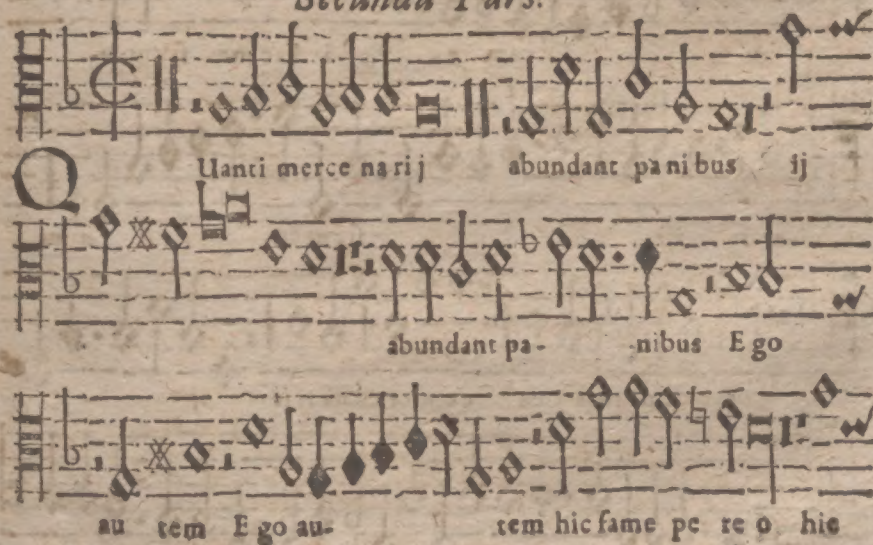 Secunda Pars.
QUanti merce narij abundant panibus ij
abundant pa- nibus Ego
au tem Ego au- tem hic fame pe re o hic